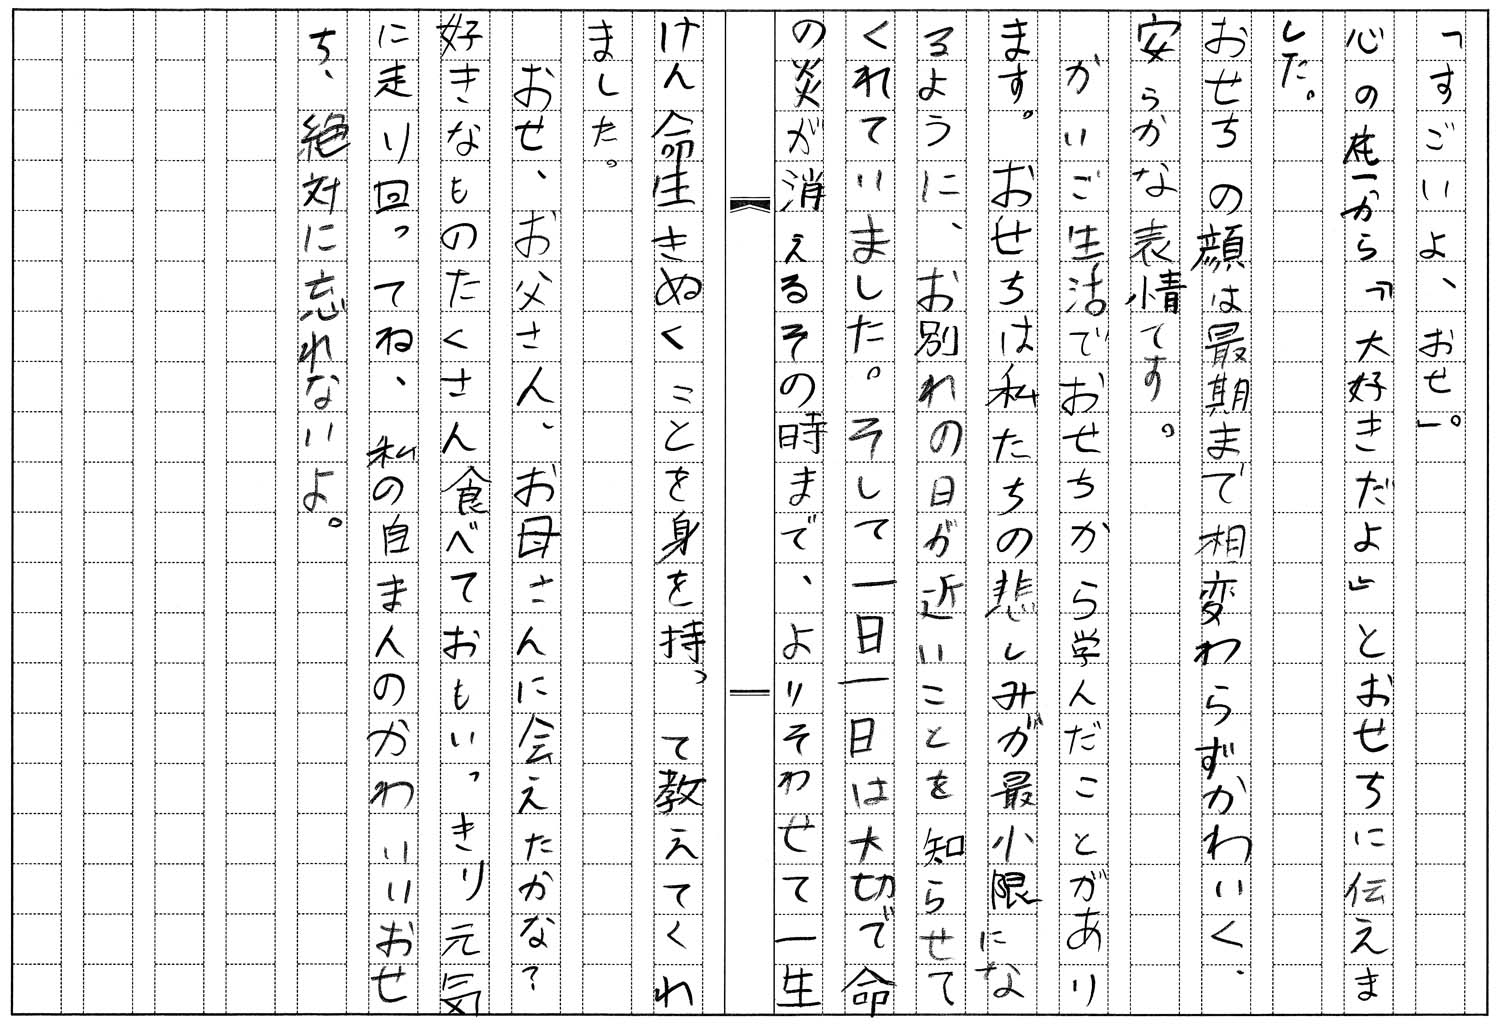 「すごいよ、おせ」。
心の底から「大好きだよ」とおせちに伝えま
した。
おせちの顔は最期まで相変わらずかわいく、
安らかな表情です。
かいご生活でおせちから学んだことがあり
ます。おせちは私たちの悲しみが最小限にな
るように、お別れの日が近いことを知らせて
くれていました。そして一日一日は大切で命
の炎が消えるその時まで、よりそわせて一生
けん命生きぬくことを身を持って教えてくれ
ました。
おせ、お父さん、お母さんに会えたかな?
好きなものたくさん食べておもいっきり元気
に走り回ってね、私の自まんのかわいいおせ
ち、絶対に忘れないよ。